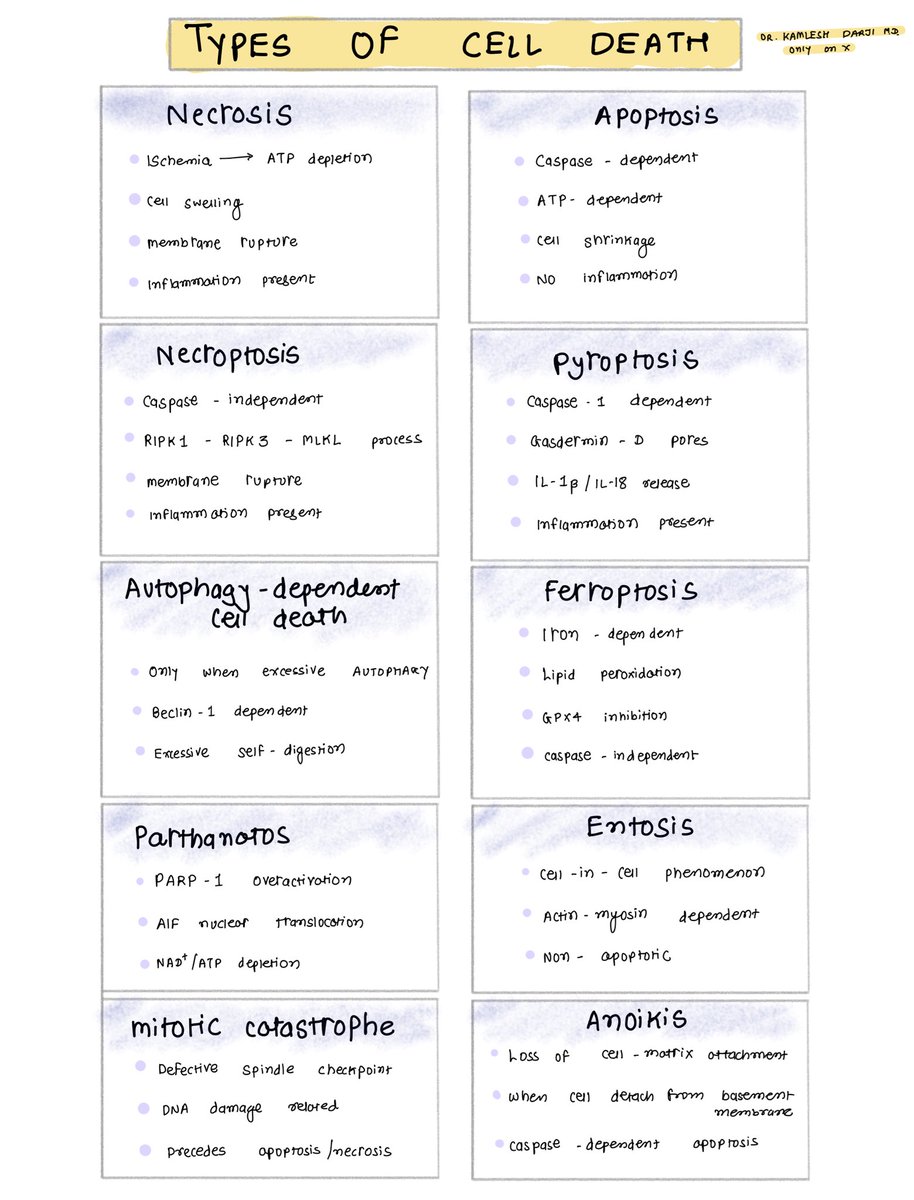 TYPES OF CELL DEATH
DR. KAMLESH DARJI M.D.
only on X
Necrosis
Ischemia → ATP depletion
cell swelling
membrane rupture
Inflammation present
Apoptosis
Caspase - dependent
ATP - dependent
cell shrinkage
NO inflammation
Necroptosis
Caspase - independent
RIPK1 - RIPK3 - MLKL process
membrane rupture
Inflammation present
Pyroptosis
Caspase - 1 dependent
Gasdermin - D pores
IL-1β / IL-18 release
Inflammation present
Autophagy - dependent
cell death
Only when excessive AUTOPHAGY
Beclin - 1 dependent
Excessive self - digestion
Ferroptosis
Iron - dependent
Lipid peroxidation
GPX4 inhibition
caspase - independent
Parthanatos
PARP - 1 overactivation
AIF nuclear translocation
NAD⁺/ATP depletion
Entosis
Cell - in - cell phenomenon
Actin - myosin dependent
Non - apoptotic
mitotic catastrophe
Defective spindle checkpoint
DNA damage related
Precedes apoptosis / necrosis
Anoikis
Loss of cell - matrix attachment
When cell detach from basement
membrane
caspase - dependent apoptosis